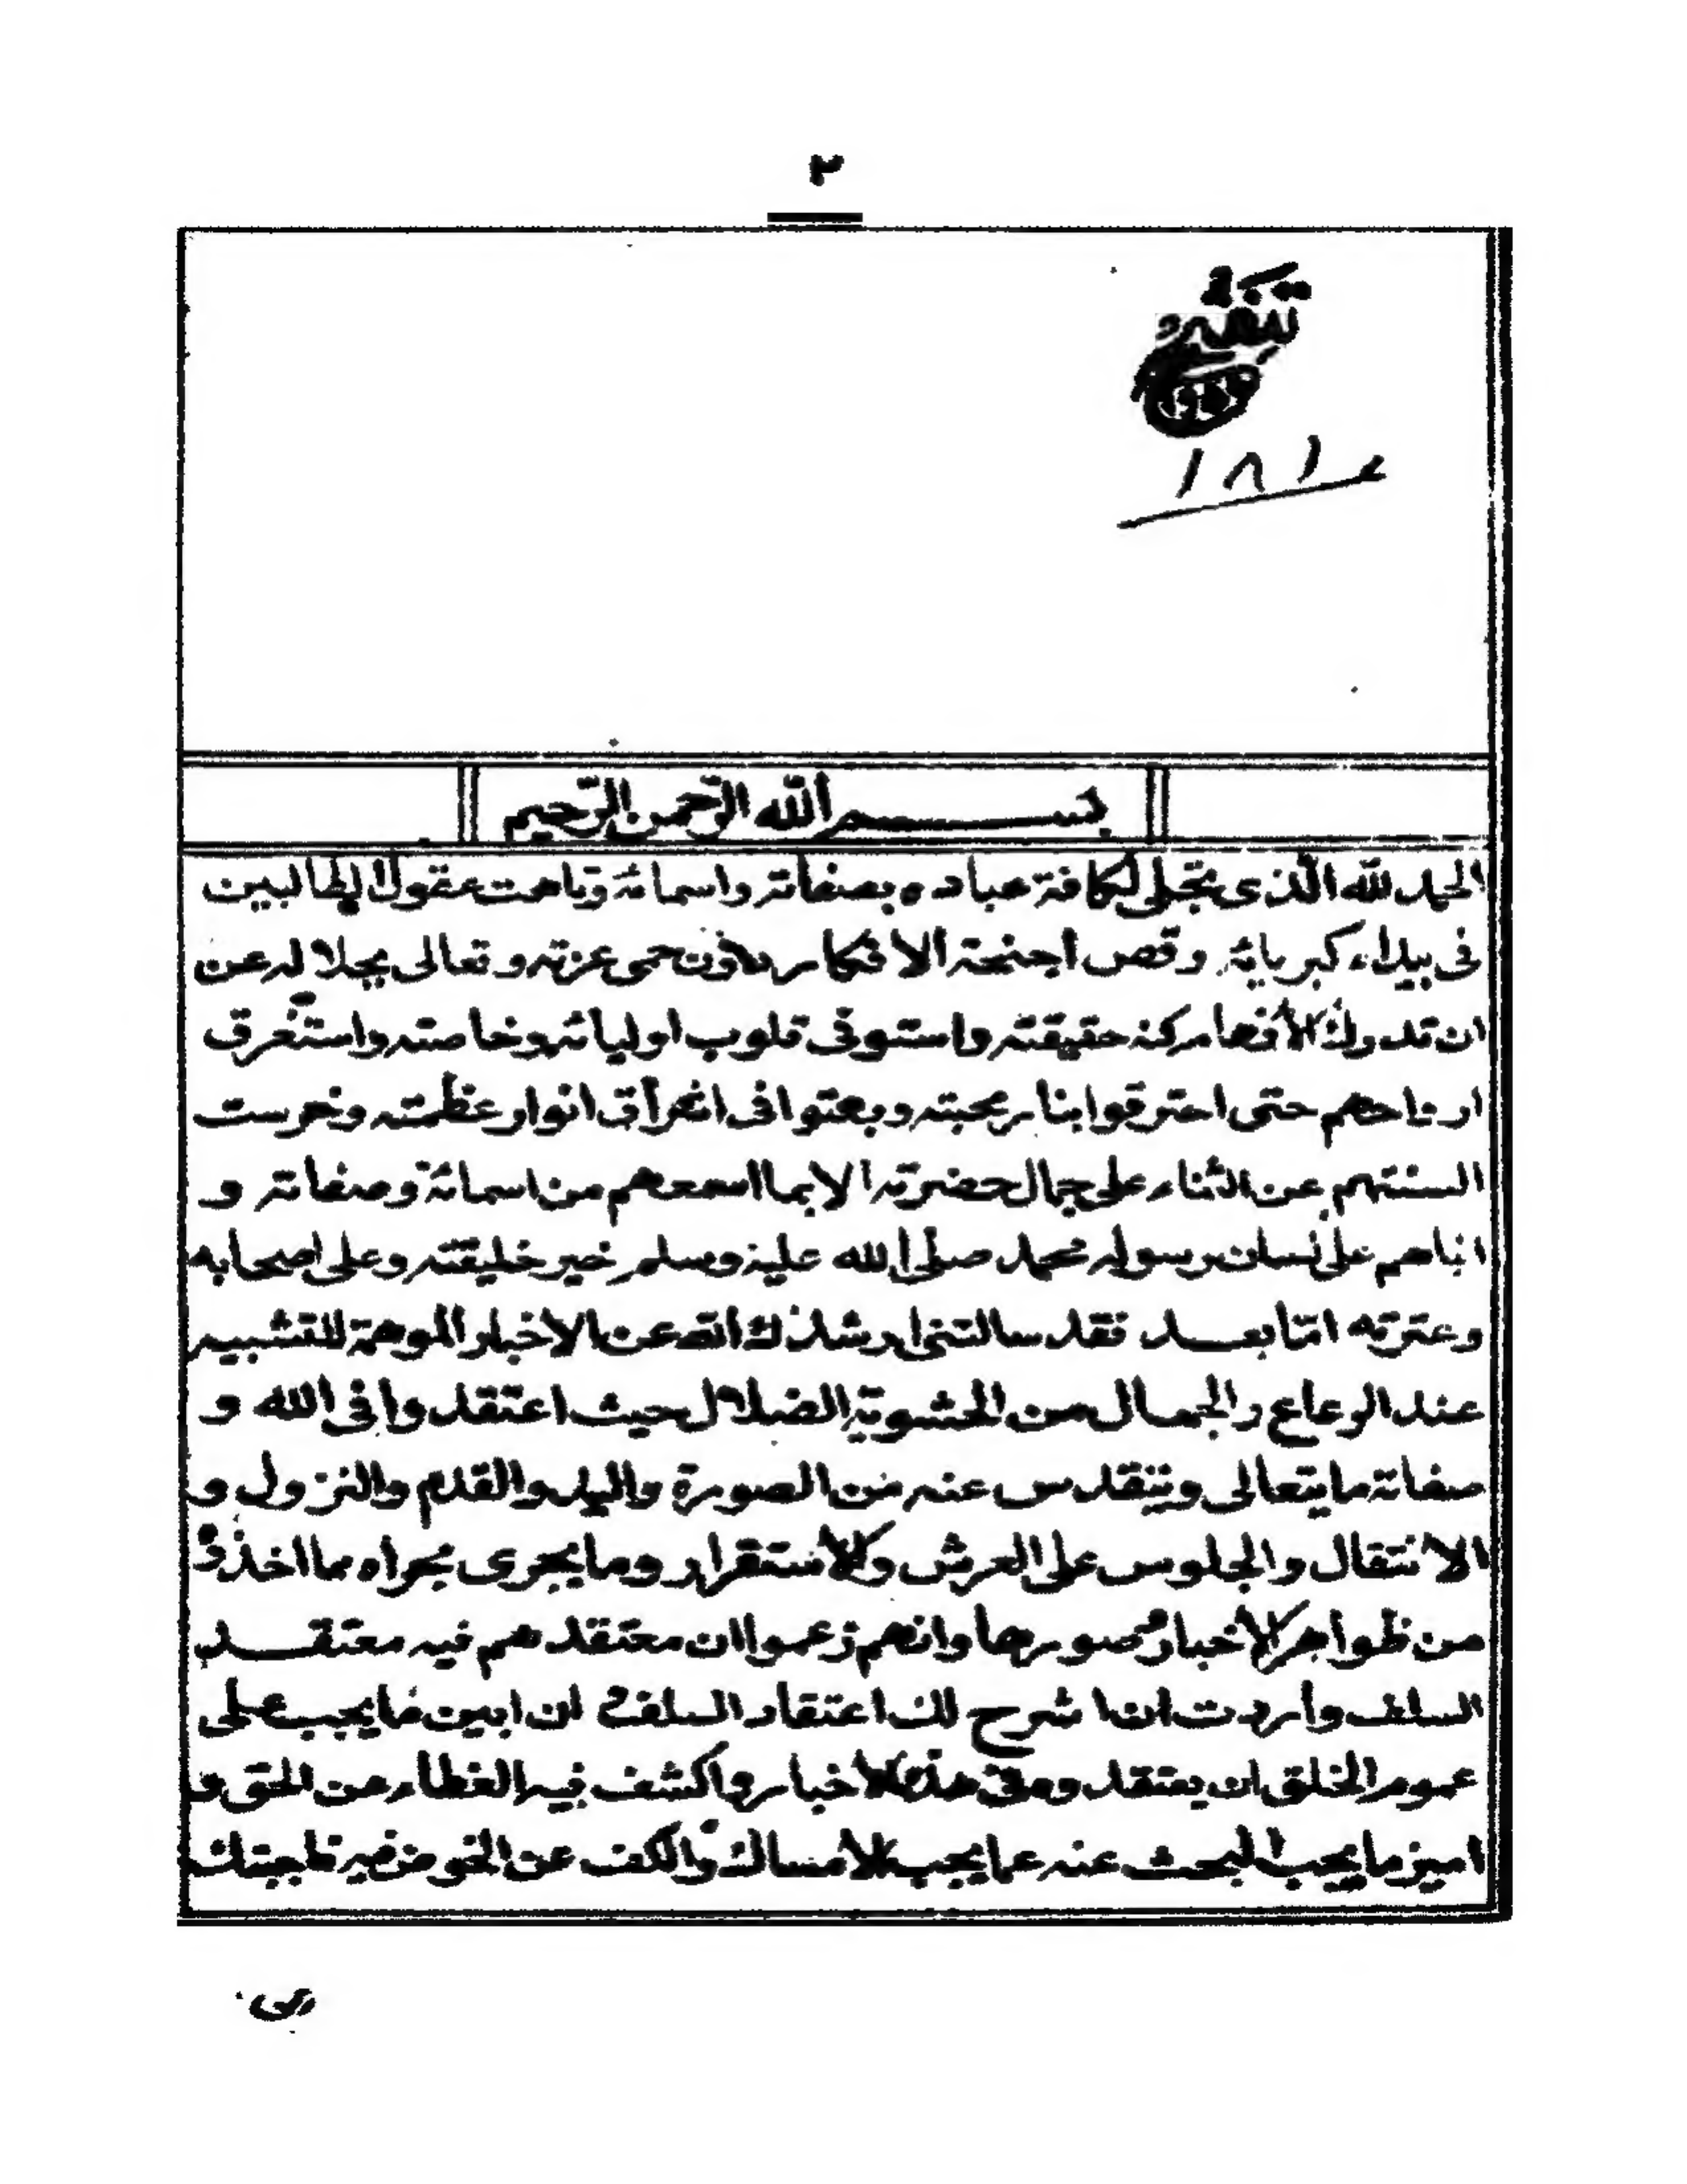 ٢
١٨١٤
بســـم الله الرّحمن الرّحيم
الحمد لله الّذى تجلى لكافة عباده بصفاته واسمائه وتاهت عقول الطالبين
فى بيداء كبريائه وقص اجنحة الافكار دون حمى عزته وتعالى بجلاله عن
ان تدرك الأفهام كنه حقيقته واستوفى قلوب اوليائه وخاصته واستغرق
ارواحهم حتى احترقوا بنار محبته وبهتوا فى اشراق انوار عظمته وخرست
السنتهم عن الثناء على جمال حضرته الا بما اسمعهم من اسمائه وصفاته و
انباهم على لسان رسوله محمد صلى الله عليه وسلم خير خليقته وعلى اصحابه
وعترته امّا بعـــد فقد سالتنى ارشدك الله عن الاخبار الموهمة للتشبيه
عند الرعاع والجهال من الحشوية الضلال حيث اعتقدوا فى الله و
صفاته ما يتعالى ويتقدس عنه من الصورة واليد والقدم والنزول و
الانتقال والجلوس على العرش والاستقرار وما يجرى مجراه مما اخذوه
من ظواهر الاخبار وصورها وانهم زعموا ان معتقدهم فيه معتقـــد
السلف وأردت ان اشرح لك اعتقاد السلف و ان ابين ما يجب على
عموم الخلق ان يعتقدوه فى هذه الاخبار واكشف فيه الغطاء عن الحق و
اميز ما يجب البحث عنه عما يجب الامساك والكف عن الخوض فيه فاجبتك